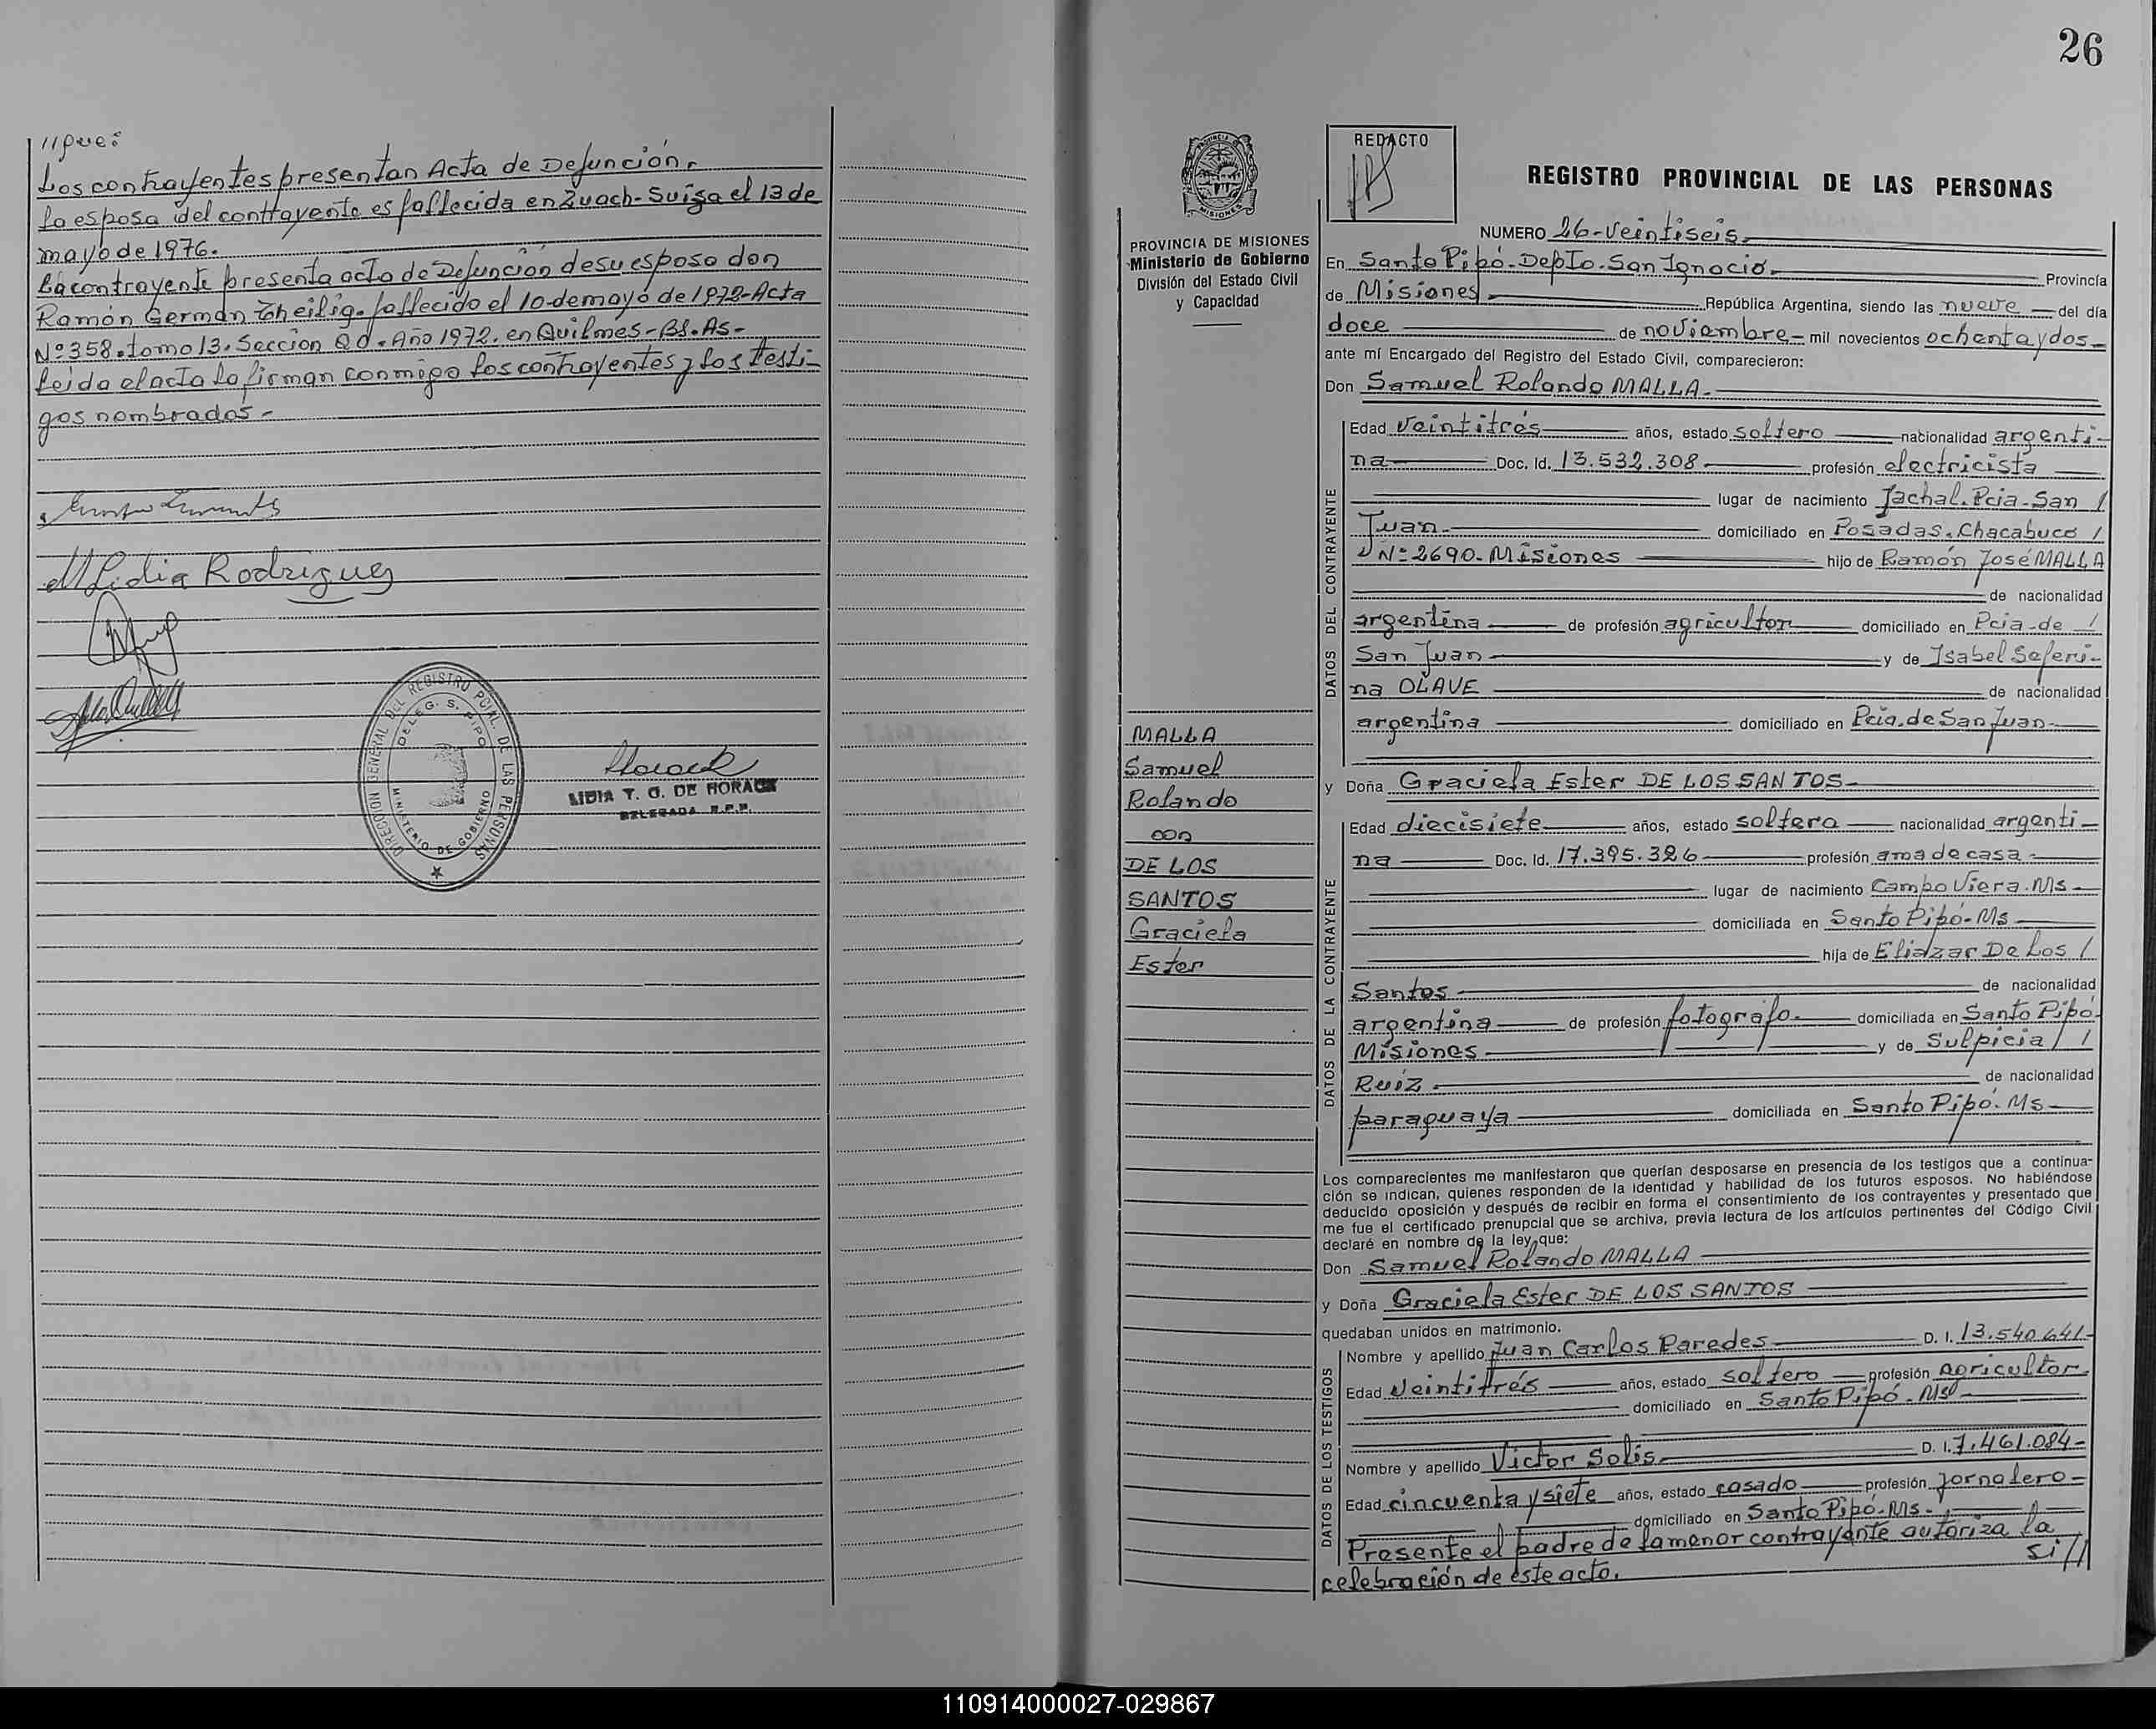 //que:
Los contrayentes presentan Acta de Defunción.
la esposa del contrayente es fallecida en Zuach-Suiza el 13 de
mayo de 1976.
La contrayente presenta acta de Defunción de su esposo don
Ramón Germán Theilig. fallecido el 10 de mayo de 1972-Acta
Nº 358. tomo 13. Sección Qd. Año 1972. en Quilmes-BS.As-
leida el acta la firman conmigo los contrayentes y los testi-
gos nombrados-
M Lidia Rodriguez
DIRECCION GENERAL DEL REGISTRO PCIAL. DE LAS PERSONAS
DELEG. S. PIPO
MINISTERIO DE GOBIERNO
LIDIA T. G. DE HORACK
DELEGADA R.P.P.
26
PROVINCIA DE MISIONES
Ministerio de Gobierno
División del Estado Civil
y Capacidad
MALLA
Samuel
Rolando
con
DE LOS
SANTOS
Graciela
Ester
REDACTO
REGISTRO PROVINCIAL DE LAS PERSONAS
NUMERO 26-veintiseis-
En Santo Pipó-Depto. San Ignacio- Provincia
de Misiones- República Argentina, siendo las nueve del día
doce de noviembre- mil novecientos ochenta y dos-
ante mí Encargado del Registro del Estado Civil, comparecieron:
Don Samuel Rolando MALLA-
DATOS DEL CONTRAYENTE
Edad veintitrés años, estado soltero nacionalidad argenti-
na Doc. Id. 13.532.308 profesión electricista
lugar de nacimiento Jachal. Pcia-San /
Juan- domiciliado en Posadas. Chacabuco /
Nº 2690-Misiones hijo de Ramón José MALLA
de nacionalidad
argentina de profesión agricultor domiciliado en Pcia-de /
San Juan y de Isabel Seferi-
na OLAVE de nacionalidad
argentina domiciliado en Pcia. de San Juan-
y Doña Graciela Ester DE LOS SANTOS-
DATOS DE LA CONTRAYENTE
Edad diecisiete años, estado soltera nacionalidad argenti-
na Doc. Id. 17.395.326 profesión ama de casa-
lugar de nacimiento Campo Viera. Ms-
domiciliada en Santo Pipó-Ms
hija de Eliazar De Los /
Santos de nacionalidad
argentina de profesión fotografo- domiciliada en Santo Pipó-
Misiones- y de Sulpicia /
Ruiz- de nacionalidad
paraguaya domiciliada en Santo Pipó-Ms-
Los comparecientes me manifestaron que querían desposarse en presencia de los testigos que a continua-
ción se indican, quienes responden de la identidad y habilidad de los futuros esposos. No habiéndose
deducido oposición y después de recibir en forma el consentimiento de los contrayentes y presentado que
me fue el certificado prenupcial que se archiva, previa lectura de los artículos pertinentes del Código Civil
declaré en nombre de la ley que:
Don Samuel Rolando MALLA
y Doña Graciela Ester DE LOS SANTOS
quedaban unidos en matrimonio.
DATOS DE LOS TESTIGOS
Nombre y apellido Juan Carlos Paredes D. I. 13.540.641-
Edad veintitrés años, estado soltero profesión agricultor
domiciliado en Santo Pipó-Ms-
Nombre y apellido Victor Solis- D. I. 7.461.084-
Edad cincuenta y siete años, estado casado profesión jornalero-
domiciliado en Santo Pipó-Ms-
Presente el padre de la menor contrayente autoriza la
celebración de este acto. si//
110914000027-029867